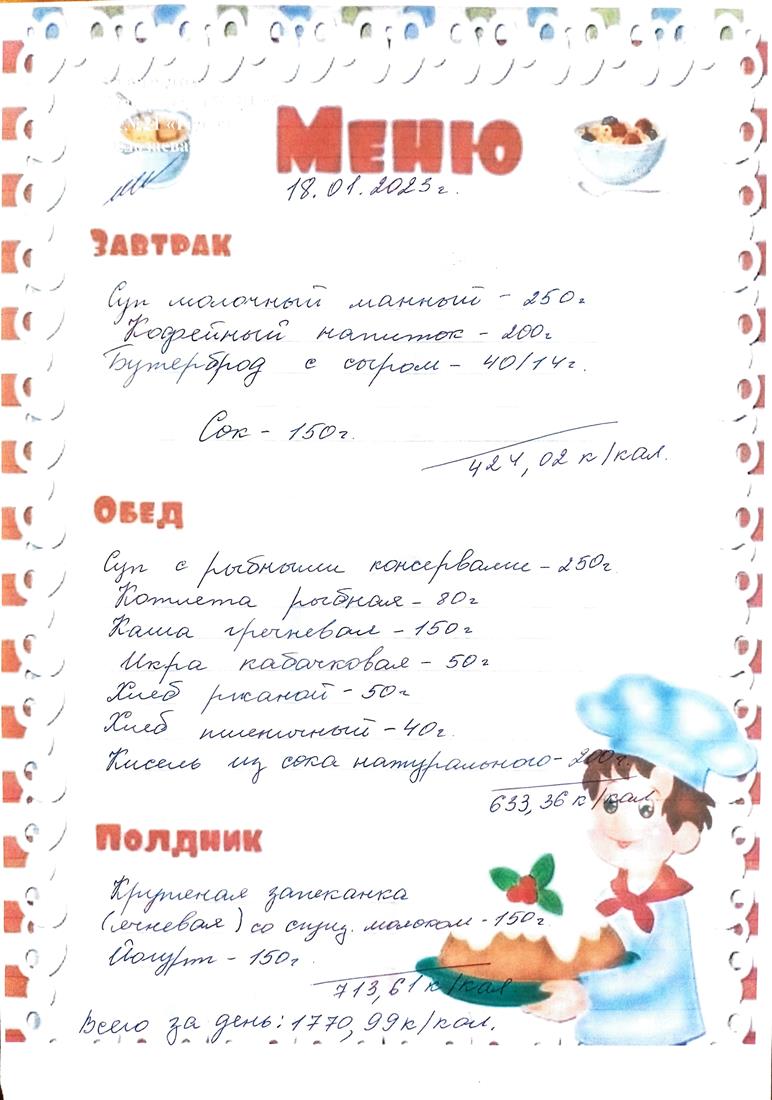 Меню
18.01.2023г.
Завтрак
Суп молочный манный - 250г
Кофейный напиток - 200г
Бутерброд с сыром - 40/14г.
Сок - 150г.
424,02 к/кал.
Обед
Суп с рыбными консервами - 250г
Котлета рыбная - 80г
Каша гречневая - 150г
Икра кабачковая - 50г
Хлеб ржаной - 50г
Хлеб пшеничный - 40г.
Кисель из сока натурального - 200г.
633,36 к/кал
Полдник
Крупеная запеканка
(ячневая) со сгущ. молоком - 150г
Йогурт - 150г.
713,61 к/кал
Всего за день: 1770,99 к/кал.